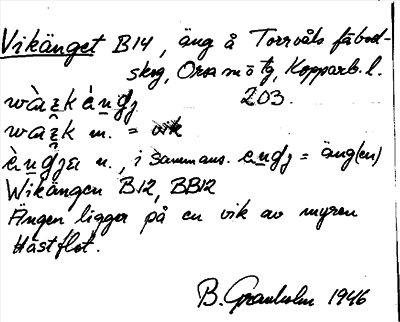 Vikänget B14, äng å Torrvåls fäbod-
skog, Orsa m o tg, Kopparb. l.
203.
m. = vik
n., i sammans. = äng(en)
Wikängen B12, BB12
Ängen ligger på en vik av myren
Hästflot.
B. Granholm 1946